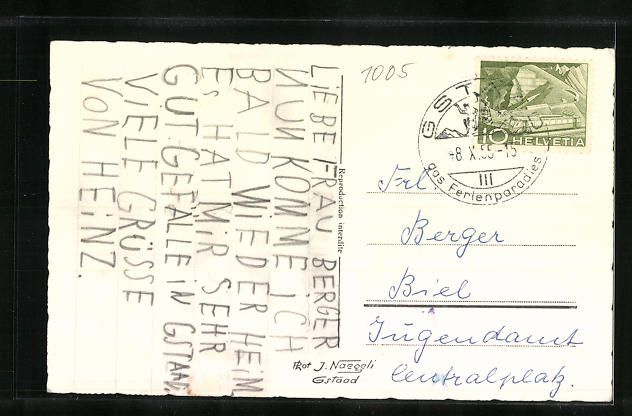 LIEBE FRAU BERGER
NUN KOMME ICH
BALD WIEDER HEIM
ES HAT MIR SEHR
GUT GEFALLE IN GSTAAD
VIELE GRÜSSE
VON HEINZ.
Reproduction interdite
1005
GSTAAD
10 HELVETIA
-8.X.55-15
III
das Ferienparadies
Frl
Berger
Biel
Jugendamt
Centralplatz.
Phot J. Naegeli
Gstaad